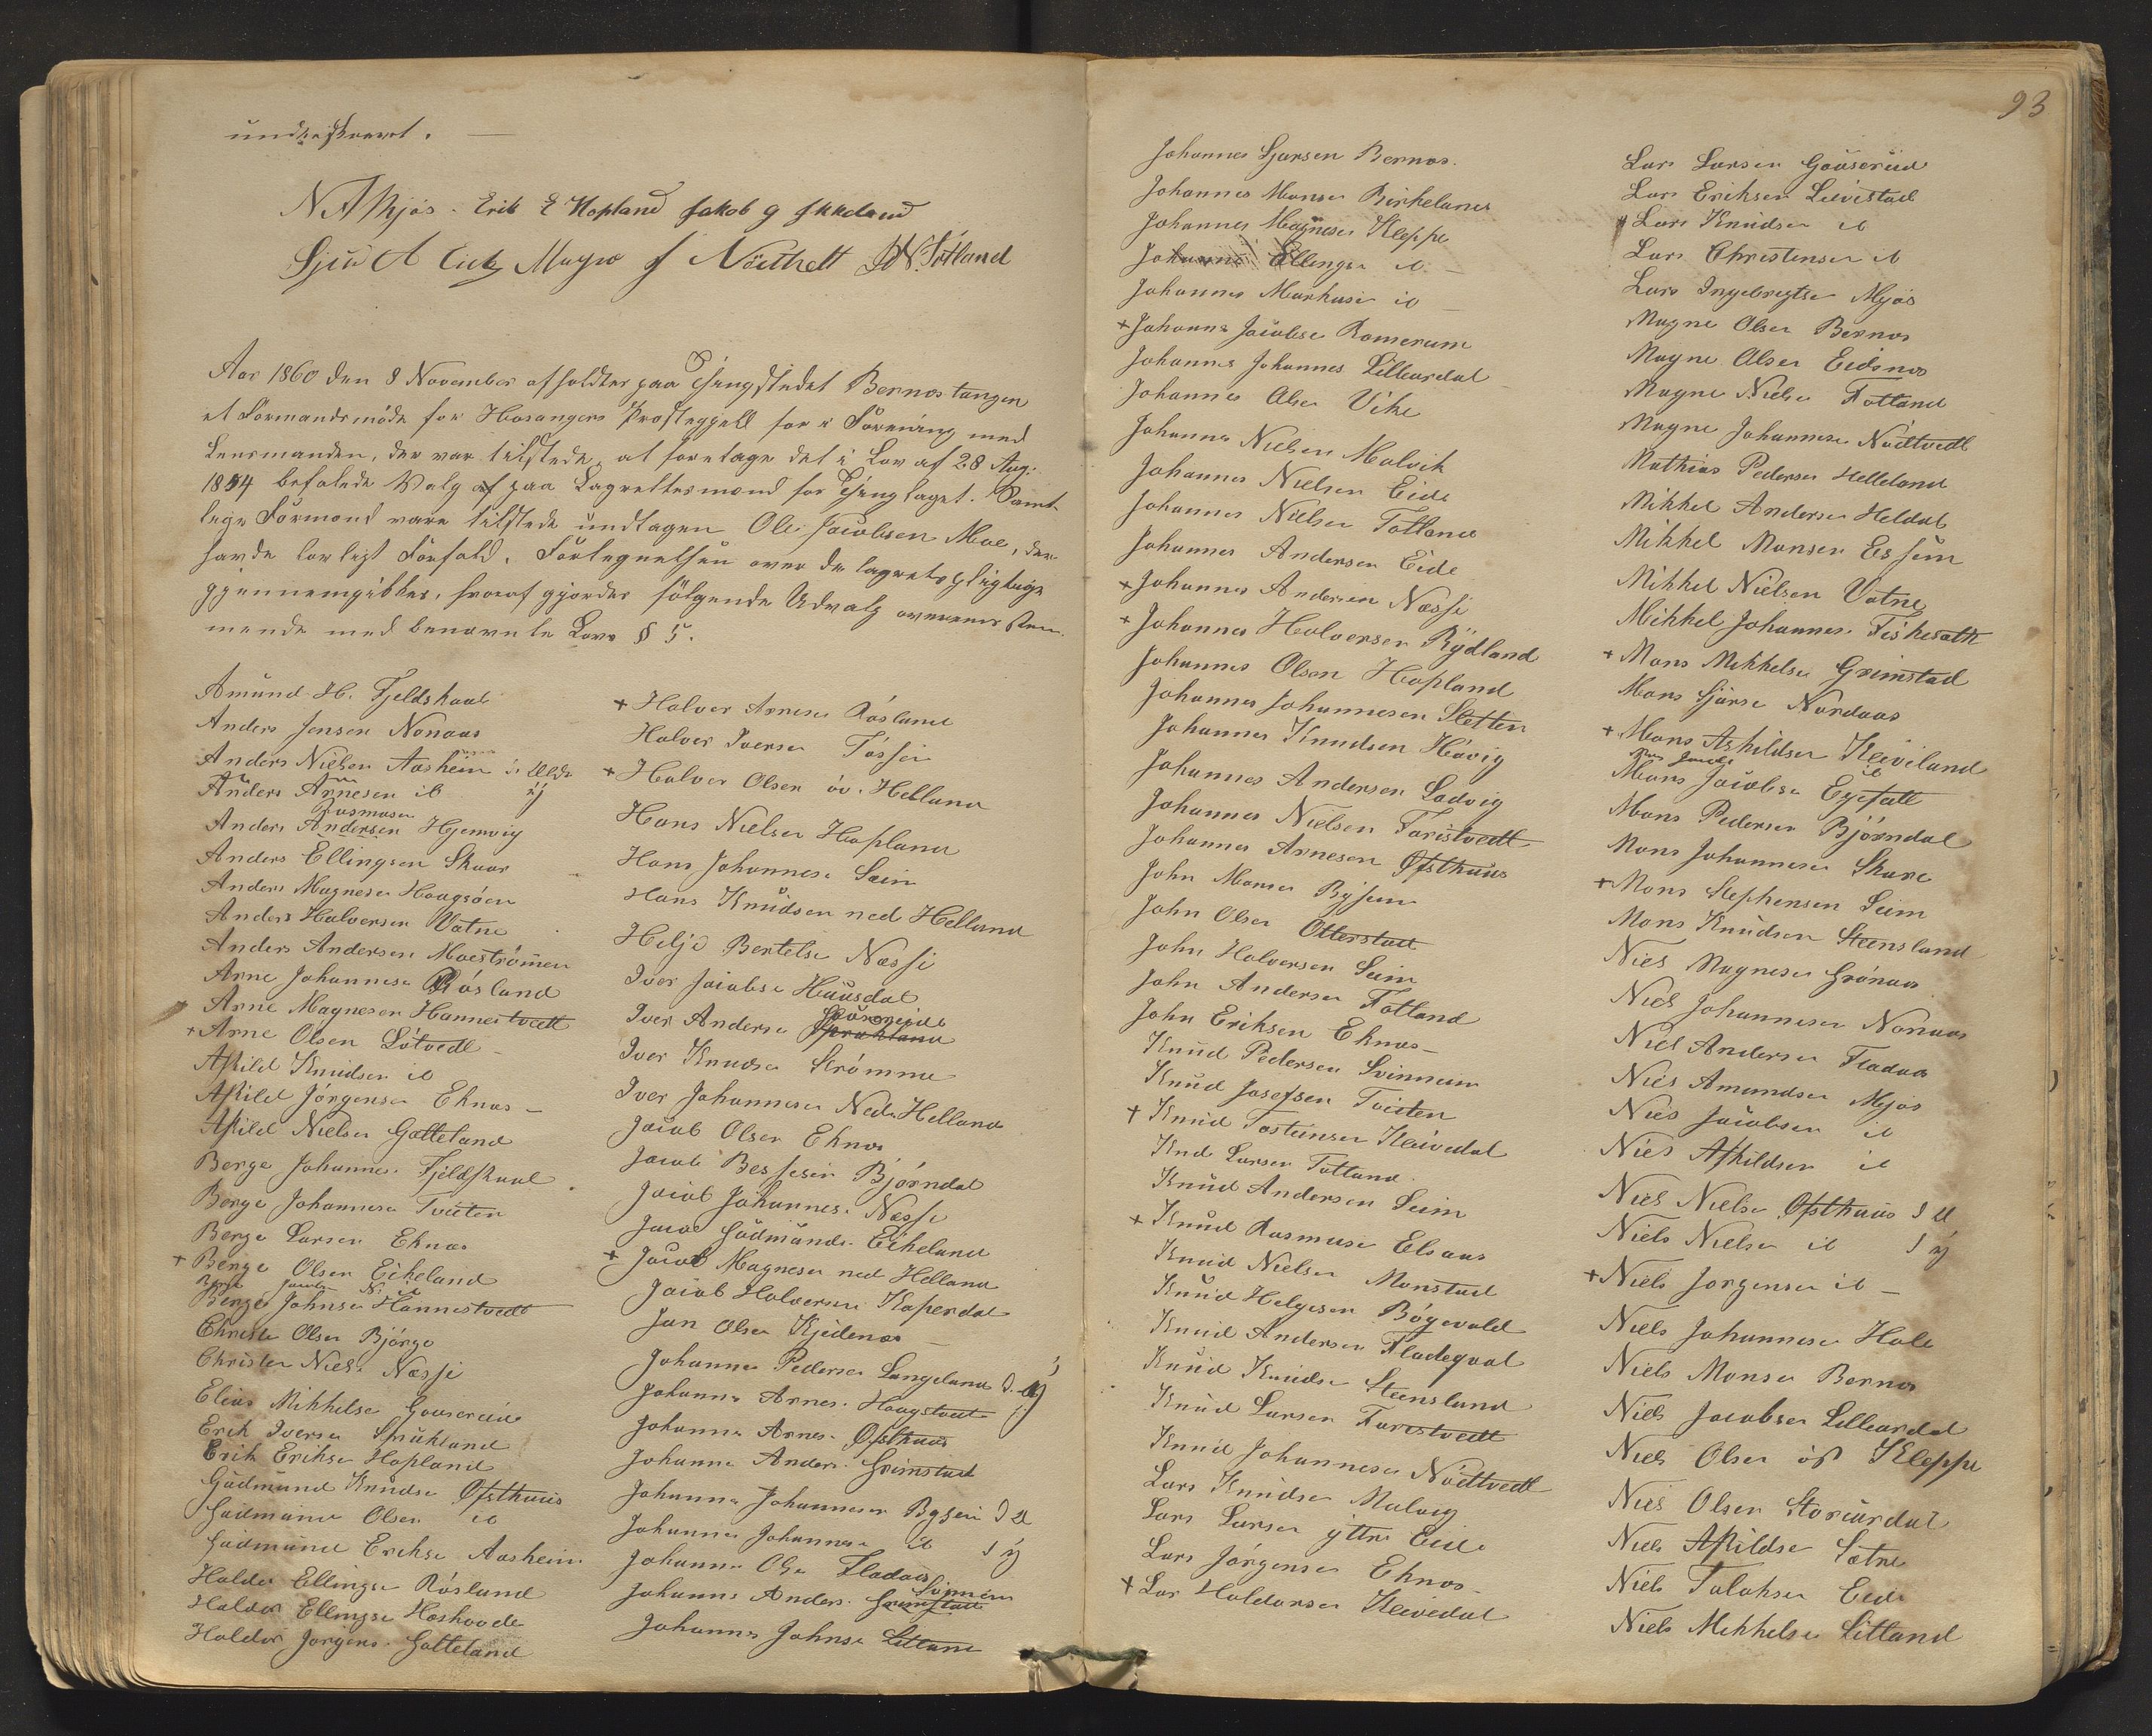 underskrevet. —
N A Mjøs. Erik E Hopland Jakob G
Sjur A Magne J Nødtvedt Fotland
Aar 1860 den 8 November afholdtes paa Thingstedet Bernostangen
et Formandsmöde for Hosangers Præstegjeld for i Forening med
Lensmanden, der var tilstede, at foretage det i Lov af 28 Aug:
1854 befalede Valg af paa Lagrettesmænd for Thinglaget. Samt-
lige Formænd vare tilstede undtagen Ole Jacobsen Moe, der
havde lovligt Forfald. Fortegnelsen over de lagretspligtige
gjennemgikkes, hvoraf gjordes følgende Udvalg overensstem-
mende med benævnte Lovs § 5.
Amund H. Fjeldskaal
Anders Jensen Nonaas
Anders Nielsen Aasheim
Anders Arnesen ib
Rasmusen
Anders Andersen Hjemvig
Anders Ellingsen Skaar
Anders Magnesen Haagsöen
Anders Halvorsen Vatne
Anders Andersen Moeströmmen
Arne Johannese Rósland
Arne Magnesen Hannestvedt
+ Arne Olsen Lötvedt
Askild Knudsen ib
Askild Jörgensen Eknæs
Askild Nielsen Galteland
Berge Johannes. Fjeldskaal
Berge Johannese Tveiten
Berge Larsen Eknæs
+ Berge Olsen Eikeland
Berge Johnsen Hannestvedt
Christen Olsen Bjørge
Christen Niels. Næsse
Elias Mikkelse Gouserud
Erik Iversen
Erik Erikse Hopland
Gudmund Knudse Ofsthuus
Gudmund Olsen ib
Gudmund Erikse Aasheim
Haldor Ellingse Rósland
Haldor Ellingse
Haldor Jörgens. Galteland
+ Halvor Arnesen Rósland
Halvor Iversen Tösse
+ Halvor Olsen öv. Helland
Hans Nielsen Hopland
Hans Johannese Seim
Hans Knudsen ned Helland
Helje Bertelse Næsse
Iver Jacobse Huusdal
Iver Anderse
Iver Knudse Strömme
Iver Johannesen Nedr. Helland
Jacob Olsen Eknæs
Jacob Bessesen Björndal
Jacob Johannes. Næsse
Jacob Gudmunds. Eikeland
+ Jacob Magnesen ned Helland
Jacob Halvorsen Koperdal
Jan Olsen Kjeilenæs
Johannes Pedersen Langeland d. y
Johannes Arnes. Haugstvedt
Johannes Arnes. Ofsthuus
Johannes Anders. Grimstad
Johannes Johannesen Bysem d. æ
Johannes Johannesen ib d. y
Johannes Olse Fladaas
Johannes Anders.
Johannes Johnse Litland
93
Johannes Sjursen Bernæs.
Johannes Monsen Birkeland
Johannes Magnesen Kleppe
Johannes Ellingsen ib —
Johannes Markusen ib —
+ Johannes Jacobse Romerum
Johannes Johannes Lilleurdal
Johannes Olsen Vike
Johannes Nielsen Molvik
Johannes Nielsen Eide
Johannes Nielsen Totland
Johannes Andersen Eide
+ Johannes Andersen Næsse
+ Johannes Halvorsen Rydland
Johannes Olsen Hopland
Johannes Johannesen Sletten
Johannes Knudsen Hövig
Johannes Andersen Ladvig
Johannes Nielsen Farestvedt
Johannes Arnesen Ofsthuus
John Monsen Bysem
John Olsen Otterstad
John Halvorsen Seim
John Andersen Fotland
John Eriksen Eknæs —
Knud Pedersen Svinneim
Knud Josefsen Tveiten
+ Knud Tosteinsen Kleivedal
Knud Larsen Totland
Knud Andersen Seim
+ Knud Rasmuse Elsaas
Knud Nielsen Monstad
Knud Helgesen Bögevold
Knud Andersen Fladeqval
Knud Knudse Steensland
Knud Larsen Farestvedt
Knud Johannesen Nødtvedt
Lars Knudsen Molvig
Lars Larsen yttre Eide
Lars Jörgensen Eknæs —
+ Lar Haldorsen Kleivedal
Lars Larsen Gouserud
Lars Eriksen Leivestad
Lars Knudsen ib
Lars Christensen ib
Lars Ingebregtse Mjøs
Magne Olsen Bernæs
Magne Olsen Eidsnæs
Magne Nielsen Fotland
Magne Johannesen Nødtvedt
Mathias Pedersen Helleland
Mikkel Andersen Heldal
Mikkel Monsen
Mikkel Nielsen Vatne
Mikkel Johannes. Fiskesæth
+ Mons Mikkelse Grimstad
Mons Sjurse Nordaas
+ Mons Askildsen Kleiveland
Mons Jacobse
Mons Pedersen Björndal
Mons Johannesen Skare
+ Mons Stephensen Seim
Mons Knudsen Steensland
Niels Magnesen Grönaas
Niels Johannesen Nonaas
Niels Andersen Fladaas
Niels Amundsen Mjøs
Niels Jacobsen ib
Niels Askildsen ib
Niels Nielse Ofsthuus d. æ
Niels Nielse ib d. y
+ Niels Jorgensen ib —
Niels Johannesen Hole
Niels Monsen Bernæs
Niels Jacobsen Lilleurdal
Niels Olsen Kleppe
Niels Olsen Storeurdal
Niels Askildse Sætre
Niels Talaksen Eide
Niels Mikkelse Litland